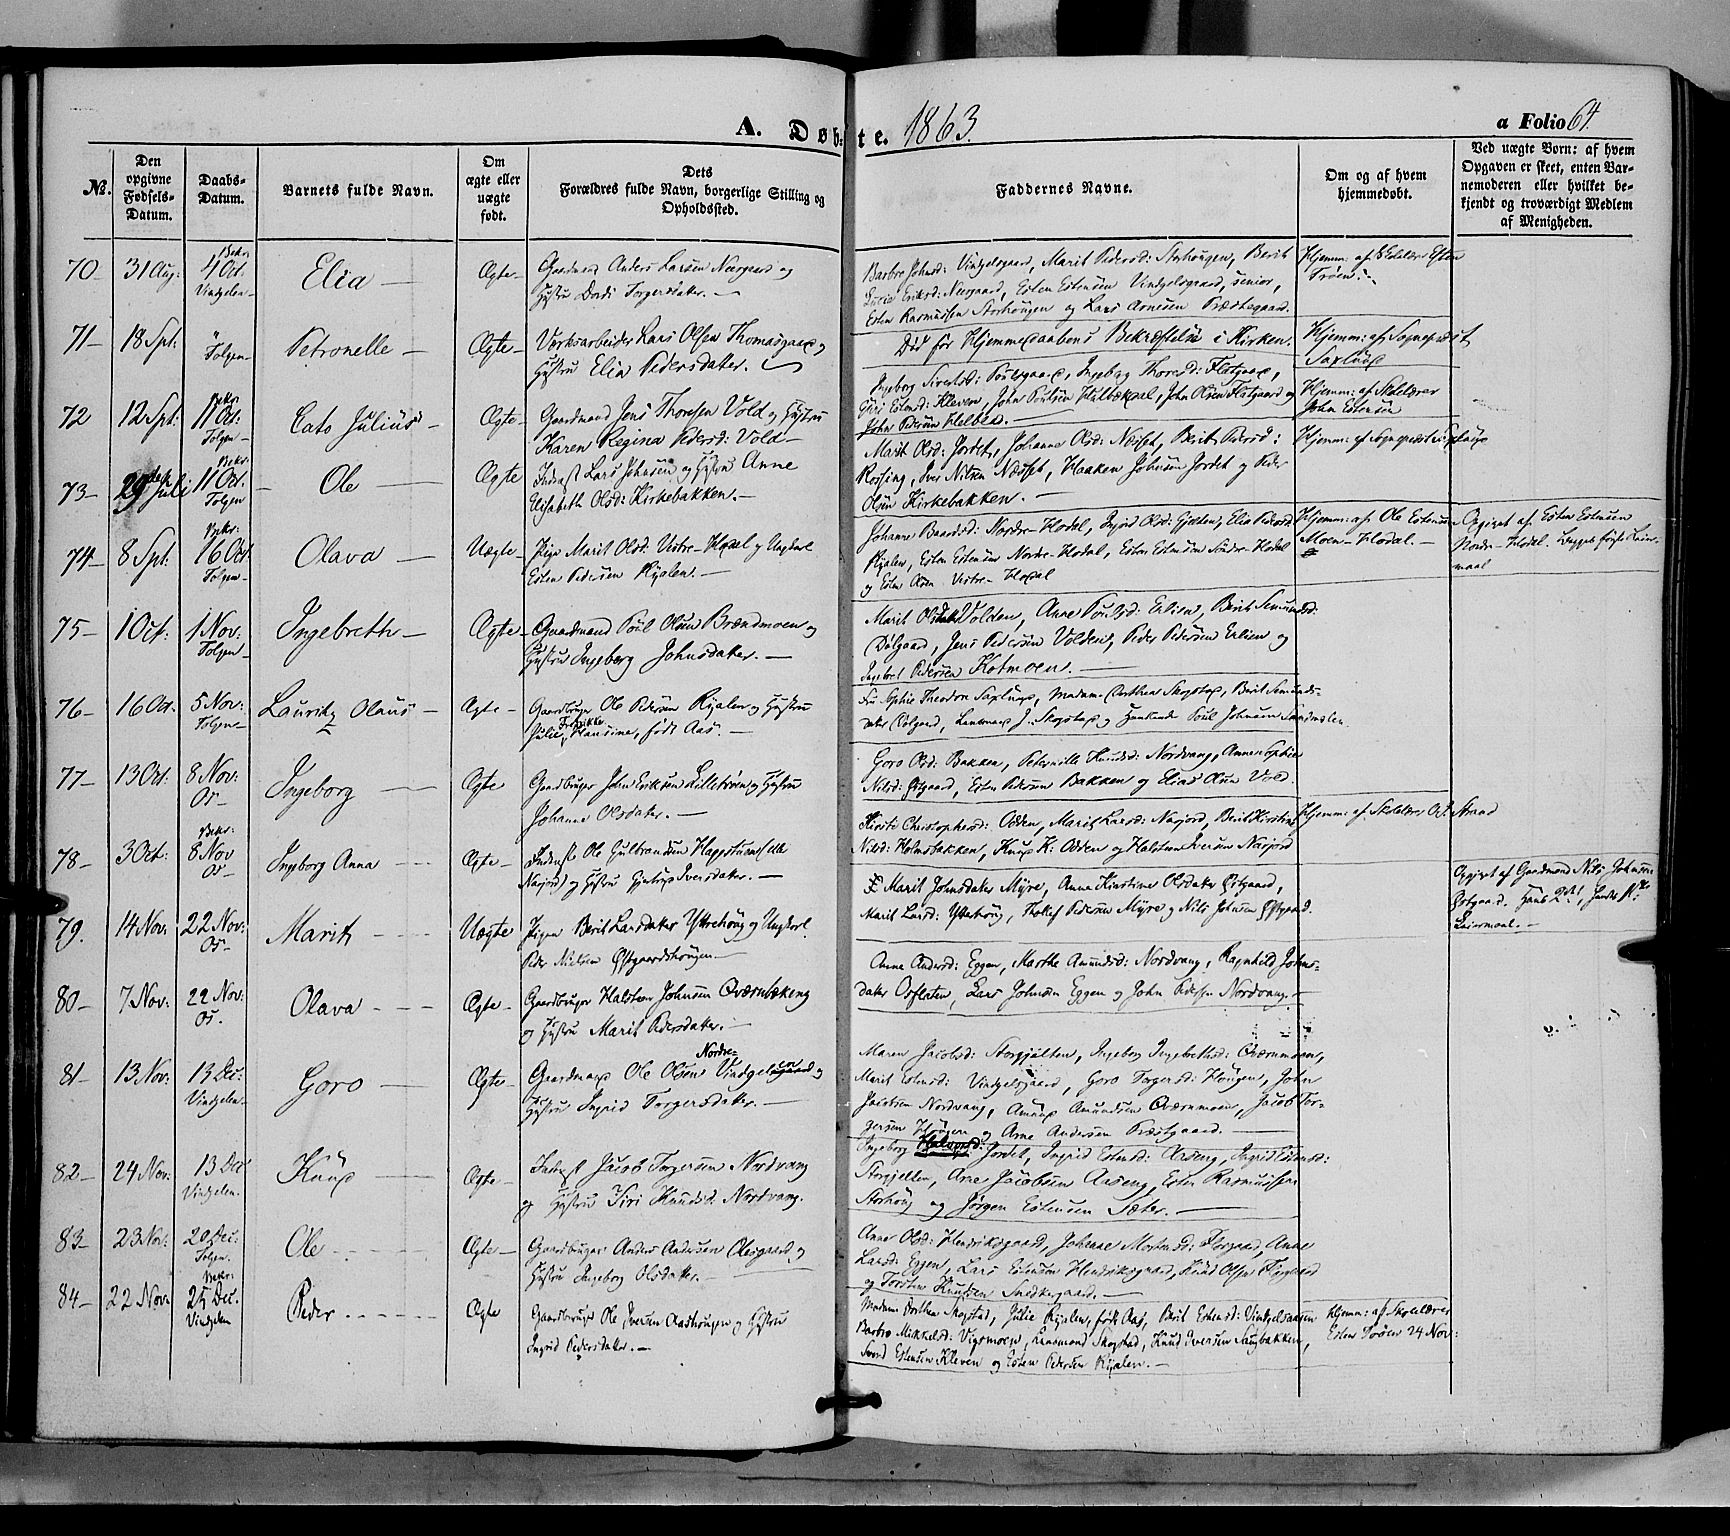 A. Døbte. 1863.
a Folio 64.
No.
Den opgivne Fødsels-Datum.
Daabs-Datum.
Barnets fulde Navn.
Om ægte eller uægte født.
Dets Forældres fulde Navn, borgerlige Stilling og Opholdssted.
Faddernes Navne.
Om og af hvem hjemmedøbt.
Ved uægte Børn: af hvem Opgaven er skeet, enten Barnemoderen eller hvilket bekjendt og troværdigt Medlem af Menigheden.
70 31 Aug: Bekr: 4 Oct. Vingelen Elia Ægte
Gaardmand Anders Larsen Neergaard og
Hustru Dordi Torgersdater.
Barbro Johnsd: Vingelsgaard, Marit Pedersd: Storhougen, Berit
Eriksd: Neergaard, Esten Estensen Vingelsgaard, senior,
Esten Rasmussen Storhougen og Lars Arnesen Præstegaard.
Hjemm: af Skolelærer Esten
Trøen
71 18 Spt: Tolgen Petronelle Ægte
Værksarbeider Lars Olsen Thomasgaard og
Hustru Elia Pedersdater.
Død før Hjemmedaabens Bekræftelse i Kirken.
Hjemm: af Sognepræst
Saxlund
72 12 Spt: Bekr: 11 Oct: Tolgen Cato Julius Ægte
Gaardmand Jens Thoresen Vold og Hustru
Karen Regina Pedersd: Vold
Ingeborg Sivertsd: Poulsgaard, Ingeborg Thoresd: Flatgaard,
Giri Estensd: Kleven, John Poulsen Hulbækdal, John Olsen Flatgaard og
John Pedersen
Hjemm: af Skolelærer
John Estensen
73 29 Juli Bekr: 11 Oct. Tolgen Ole Ægte
Inderst Lars Johnsen og Hustru Anne
Elisabeth Olsd: Kirkebakken.
Marit Olsd: Jordet, Johanne Olsd: Næsset, Berit Pedersd:
Røssing, Iver Nilsen Næsset, Haaken Johnsen Jordet og Peder
Olsen Kirkebakken.
Hjemm: af Sognepræst Saxlund
74 8 Spt: Bekr: 16 Oct. Tolgen Olava Uægte
Pige Marit Olsd: Vestre-Hodal og Ungkarl
Esten Pedersen Ryalen.
Johanne Baardsd: Nordre-Hodal, Ingrid Olsd: Gjelten, Elia Pedersd
Ryalen, Esten Estensen Nordre-Hodal, Esten Estensen Søndre-Hodal
og Esten Olsen Vestre-Hodal
Hjemm: af Ole Estensen
Moen-Hodal.
Opgivet af Esten Estensen
Nordre-Hodal. Begges første Leier-
maal
75 1 Oct: 1 Nov: Tolgen Ingebreth Ægte
Gaardmand Poul Olsen Brændmoen og
Hustru Ingeborg Johnsdater.
Marit Olsdater Volden, Anne Poulsd: Erlien, Berit Simensd:
Dølgaard, Jens Pedersen Volden, Peder Pedersen Erlien og
Ingebret Pedersen Kotmoen.
76 16 Oct. 5 Nov: Tolgen Lauritz Olaus Ægte
Gaardbruger Ole Pedersen Ryalen og Hustru
Julie Fredrikke Hansine, født Aas.
Fru Sophie Theodora Saxlund, Madam Dorthea Skogstad, Berit Simens-
dater Dølgaard, Lensmand J. Skogstad og Poul Johnsen Sandmælen.
77 13 Oct: 8 Nov: Os Ingeborg Ægte
Gaardbruger John Eriksen Lillebrøen og Hustru
Johanne Olsdater.
Goro Olsd: Bakken, Pedernille Knudsd: Nordvang, Anne Sophie
Nilsd: Østgaard, Esten Pedersen Bakken og Elias Olsen Vold.
78 3 Oct: Bekr: 8 Nov Os Ingeborg Anna Ægte
Inderst Ole Gulbrandsen Haystuen (eller
Narjord) og Hustru Iversdater.
Kirsti Christophersd: Odden, Marit Larsd: Narjord, Berit Kirstine
Nilsd: Holmsbakken, Knud K: Odden og Halsten Iversen Narjord
Hjemm: af Skolelærer O. Strand
79. 14 Nov: 22 Nov: Os Marit Uægte
Pigen Berit Larsdater Yttrehoug og Ungkarl
Peder Nielsen Østgaardshougen.
Marit Johnsdater Myre, Anne Kirstine Olsdater Østgaard,
Marit Larsd: Ytterhoug, Tollef Pedersen Myre og Nils Johnsen Østgaard.
Opgivet af Gaardmand Nils Johnsen
Østgaard. Hans 2det, Hendes 1ste
Leiermaal.
80 7 Nov: 22 Nov: Os. Olava Ægte
Gaardbruger Halsten Johnsen Qværnbækeng
og Hustru Marit Pedersdater.
Anne Andersd: Eggen, Marthe Amundsd: Nordvang, Ragnhild Johns-
dater Osfloten, Lars Johnsen Eggen og John Pedersen Nordvang.
81 13 Nov: 13 Dec: Vingelen Goro Ægte
Gaardmand Ole Olsen Nordre-Vingelsgaard og
Hustru Ingrid Torgersdater.
Maren Jacobsd: Storgjelten, Ingeborg Ingebrethsd: Qværnmoen,
Marit Estensd: Vingelsgaard, Goro Torgersd: Hougen, John
Jacobsen Nordvang, Amund Amundsen Qværnmoen, Jacob Tor-
gersen Hougen og Arne Andersen Præstgaard.
82 24 Nov: 13 Dec Vingelen Knud Ægte
Inderst Jacob Torgersen Nordvang
og Hustru Siri Knudsd: Nordvang.
Ingeborg Halvorsd: Jordet, Ingrid Estensd: Aaseng, Ingrid Estensd:
Storgjelten, Arne Jacobsen Aaseng, Esten Rasmussen
Storhoug og Jørgen Estensen Sæter.
83 23 Nov: 20 Dec: Tolgen. Ole Ægte
Gaardbruger Anders Andersen Olesgaard og
Hustru Ingeborg Olsdater.
Anne Olsd: Hendriksgaard, Johanne Mortensd: Flogaard, Anne
Larsd: Eggen, Lars Estensen Hendriksgaard, Knud Olsen
og Torsten Knudsen Snedkergaard.
84 22 Nov: Bekr: 25 Dec: Vingelen Peder Ægte
Gaardbruger Ole Iversen Aashougen og Hustru
Ingrid Pedersdater.
Madame Dorthea Skogstad, Julie Ryalen, født Aas, Berit Estensd: Vingelsaasen
Barbro Mikkelsd: Vigsmoen, Lensmand Skogstad, Knud Iversen Saubakken,
Svend Estensen Kleven og Esten Pedersen Ryalen.
Hjemm: af Skolelærer
Esten Trøen 24 Nov: